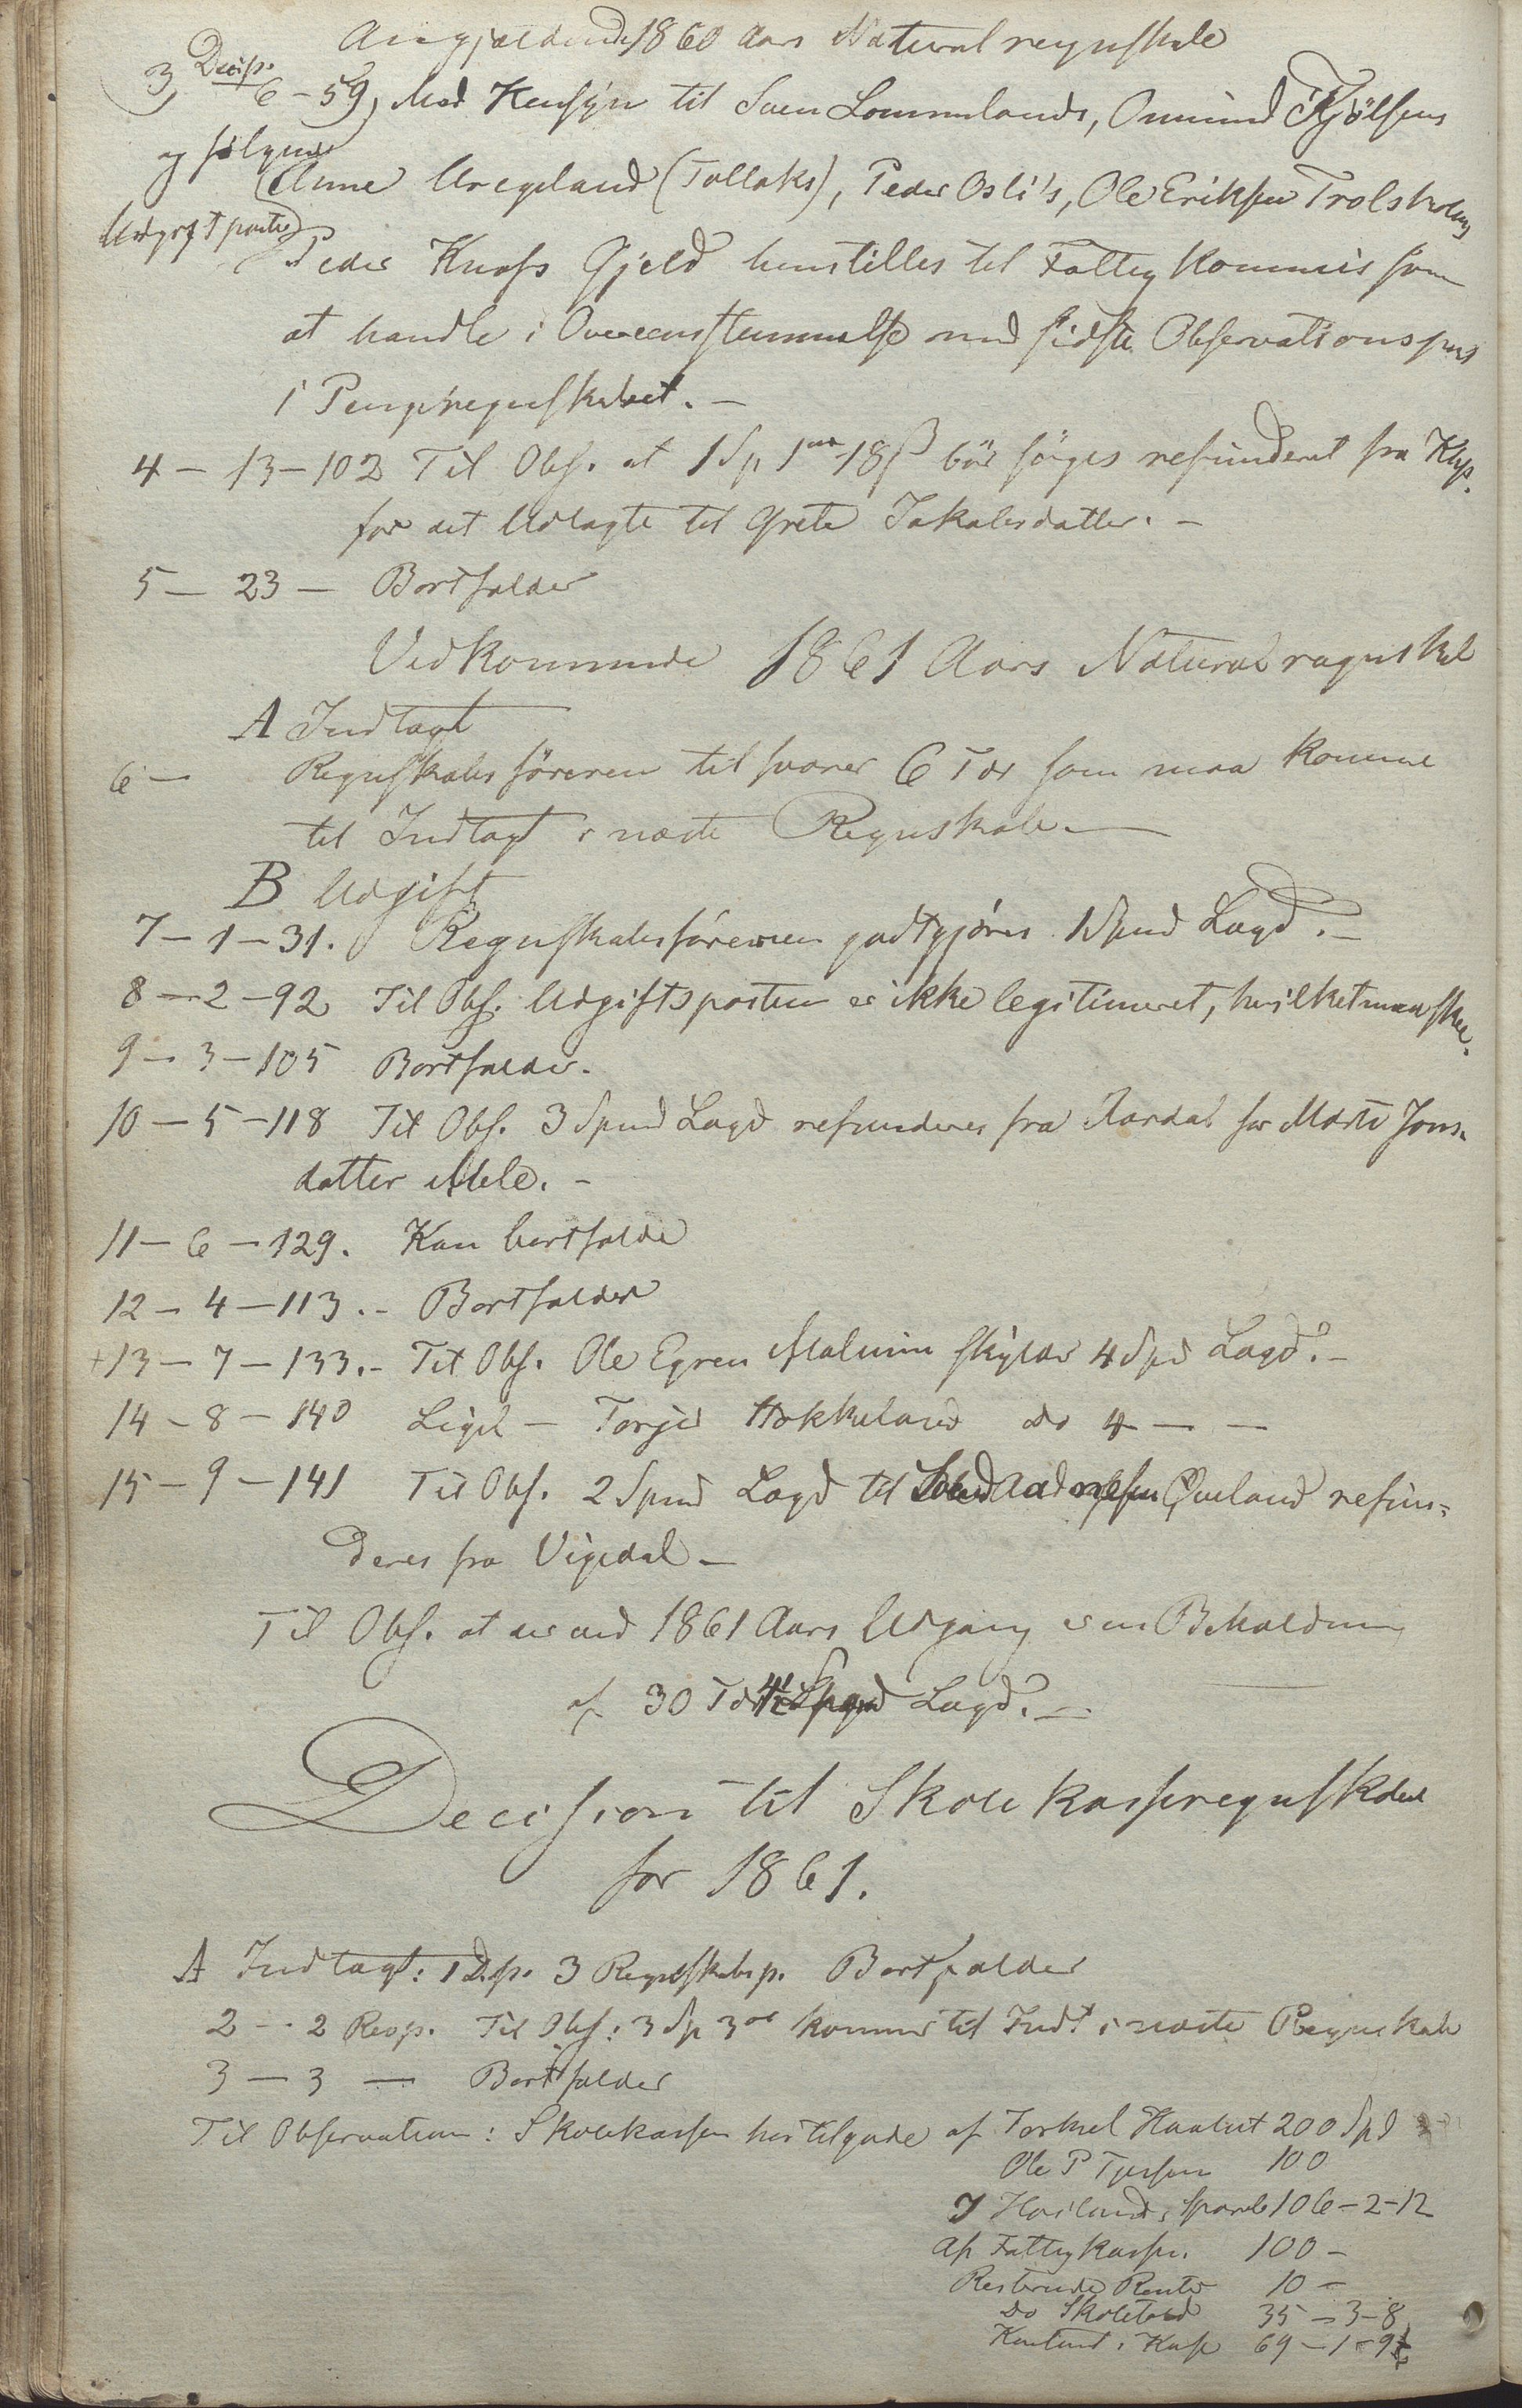 Angjældende 1860 Aars Naturalregnskab
3, Decisp. 6 - 59, Med Hensyn til Sven Lommelands, Ommund Kjølsens
og følgende (Anne Uregeland (Tollaks), Peder Osli's, Ole Eriksen Trolsholms
Udgiftposter Peder Knoss Gjeld henstilles til Fattigkommissionen
at handle i Overeensstemmelse med sidste Observationspost
i Pengeregnskabet. -
4 - 13 - 102 Til Obs. at 1 Sp 1 mrk 18 ß bör söges refunderet fra Klep.
for det Udlagte til Grete Jakobsdatter. -
5 - 23 - Bortfalder
Vedkommende 1861 Aars Naturalregnskab
A Indtægt
6 - Regnskabsföreren tilsvarer 6 Tdr som maa komme
til Indtægt i næste Regnskab. -
B Udgift
7 - 1 - 31. Regnskabsföreren godtgjöres 1 Spnd Lagd. -
8 - 2 - 92 Til Obs. Udgiftsposten er ikke legitimeret, hvilket maa skee.
9 - 3 - 105 Bortfalder.
10 - 5 - 118 Til Obs. 3 Spnd Lagd refunderes fra Aardal for Marte Jons-
datter Mele. -
11 - 6 - 129. Kan bortfalde
12 - 4 - 113. - Bortfalder
+13 - 7 - 133. - Til Obs. Ole Egren Malmin skylder 4 Spd Lagd. -
14 - 8 - 140 Ligel - Torjer Hokkeland do 4 - -
15 - 9 - 141 Til Obs. 2 Spnd Lagd til Aadnesen Qveland refun-
deres fra Vigedal -
Til Obs. at der ved 1861 Aars Udgang er en Beholdning
af 30 Tdr 4½ Spnd Lagd. -
Decision til Skolekasseregnskabet
for 1861.
A Indtægt: 1 D.p. 3 Regnskabsp. Bortfalder
2 - 2 Regp. Til Obs: 3 Sp 3 ort kommer til Indt i næste Regnskab
3 - 3 - Bortfalder
Til Observation: Skolekassen har tilgode af Torkel Haalut 200 Spd
Ole P Tjersen 100
J Høilands Spareb 106 - 2 - 12
Af Fattigkassen. 100 -
Resterende Renter 10 -
do Skoletold 35 - 3 - 8
Kontant i Kasse 69 - 1 - 9½